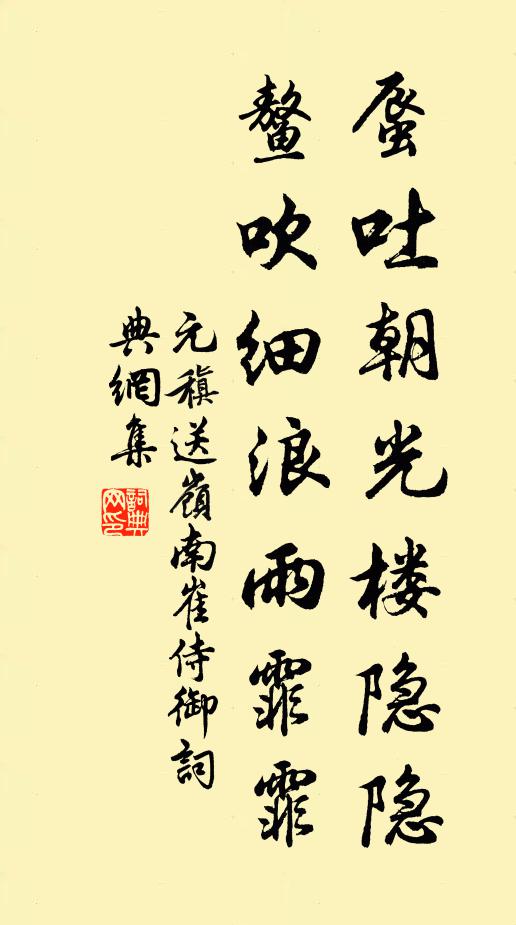 蜃吐朝光楼隐隐
鳌吹细浪雨霏霏
元稹送嶺南崔侍御詞
典網集
詞典網印